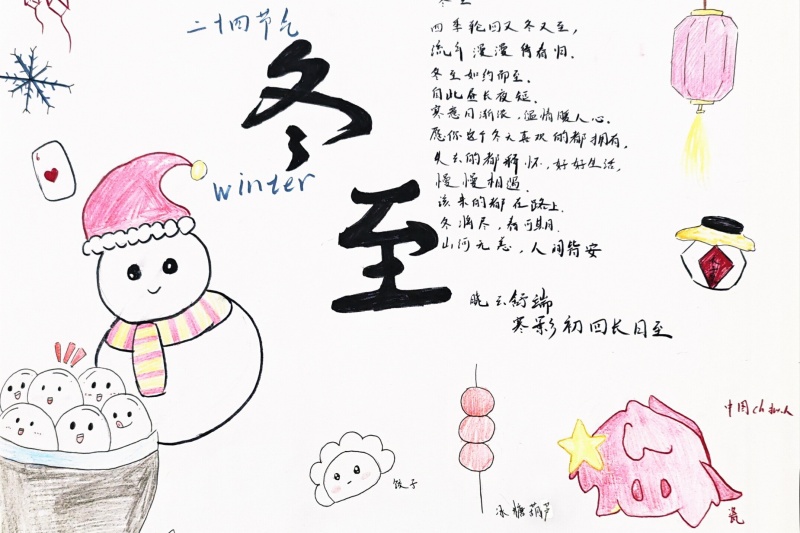 二十四节气
冬至
winter
冬至
四季轮回又冬又至,
流年漫漫待春归.
冬至如约而至.
自此昼长夜短.
寒意日渐浓,温情暖人心.
愿你这个冬天喜欢的都拥有,
失去的都释怀,好好生活,
慢慢相遇.
该来的都在路上.
冬将尽,春可期.
山河无恙,人间皆安
晓云舒瑞
寒彩初回长日至
饺子
冰糖葫芦
中国
瓷